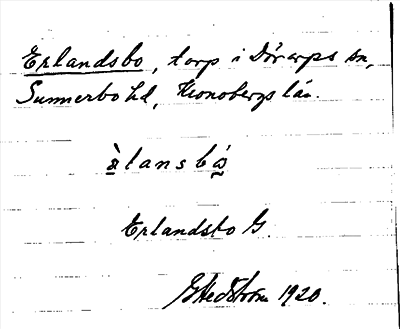 Erlandsbo, torp i Dörarps sn,
Sunnerbo hd, Kronobergs län.
lansb
Erlandsbo G.
GHedström 1920.